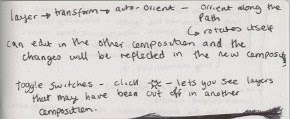 layer → transform → auto-orient - orient along the
Path
↳ rotates itself
can edit in the other composition and the
changes will be replected in the new composit
toggle switches - click ☼ - lets you see layers
that may have been cut off in another
composition.